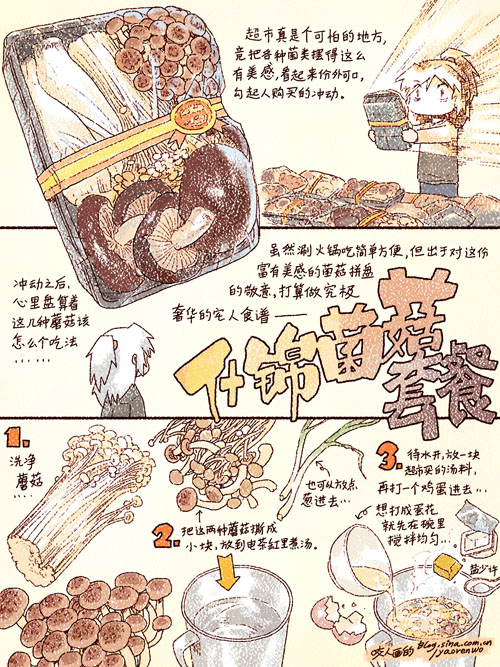 超市真是个可怕的地方，
竟把各种菌类摆得这么
有美感，看起来份外可口，
勾起人购买的冲动。
冲动之后，
心里盘算着
这几种蘑菇该
怎么个吃法
……
虽然涮火锅吃简单方便，但出于对这份
富有美感的菌菇拼盘
的敬意，打算做究极
奢华的宅人食谱——
什锦菌菇
套餐
1.
洗净
蘑菇…
也可以放点
葱进去…
2.
把这两种蘑菇撕成
小块，放到电茶缸里煮汤。
3.
待水开，放一块
超市买的汤料，
再打一个鸡蛋进去…
想打成蛋花
就先在碗里
搅拌均匀…
盐少许
妖人画的
blog.sina.com.cn
/yaorenwo